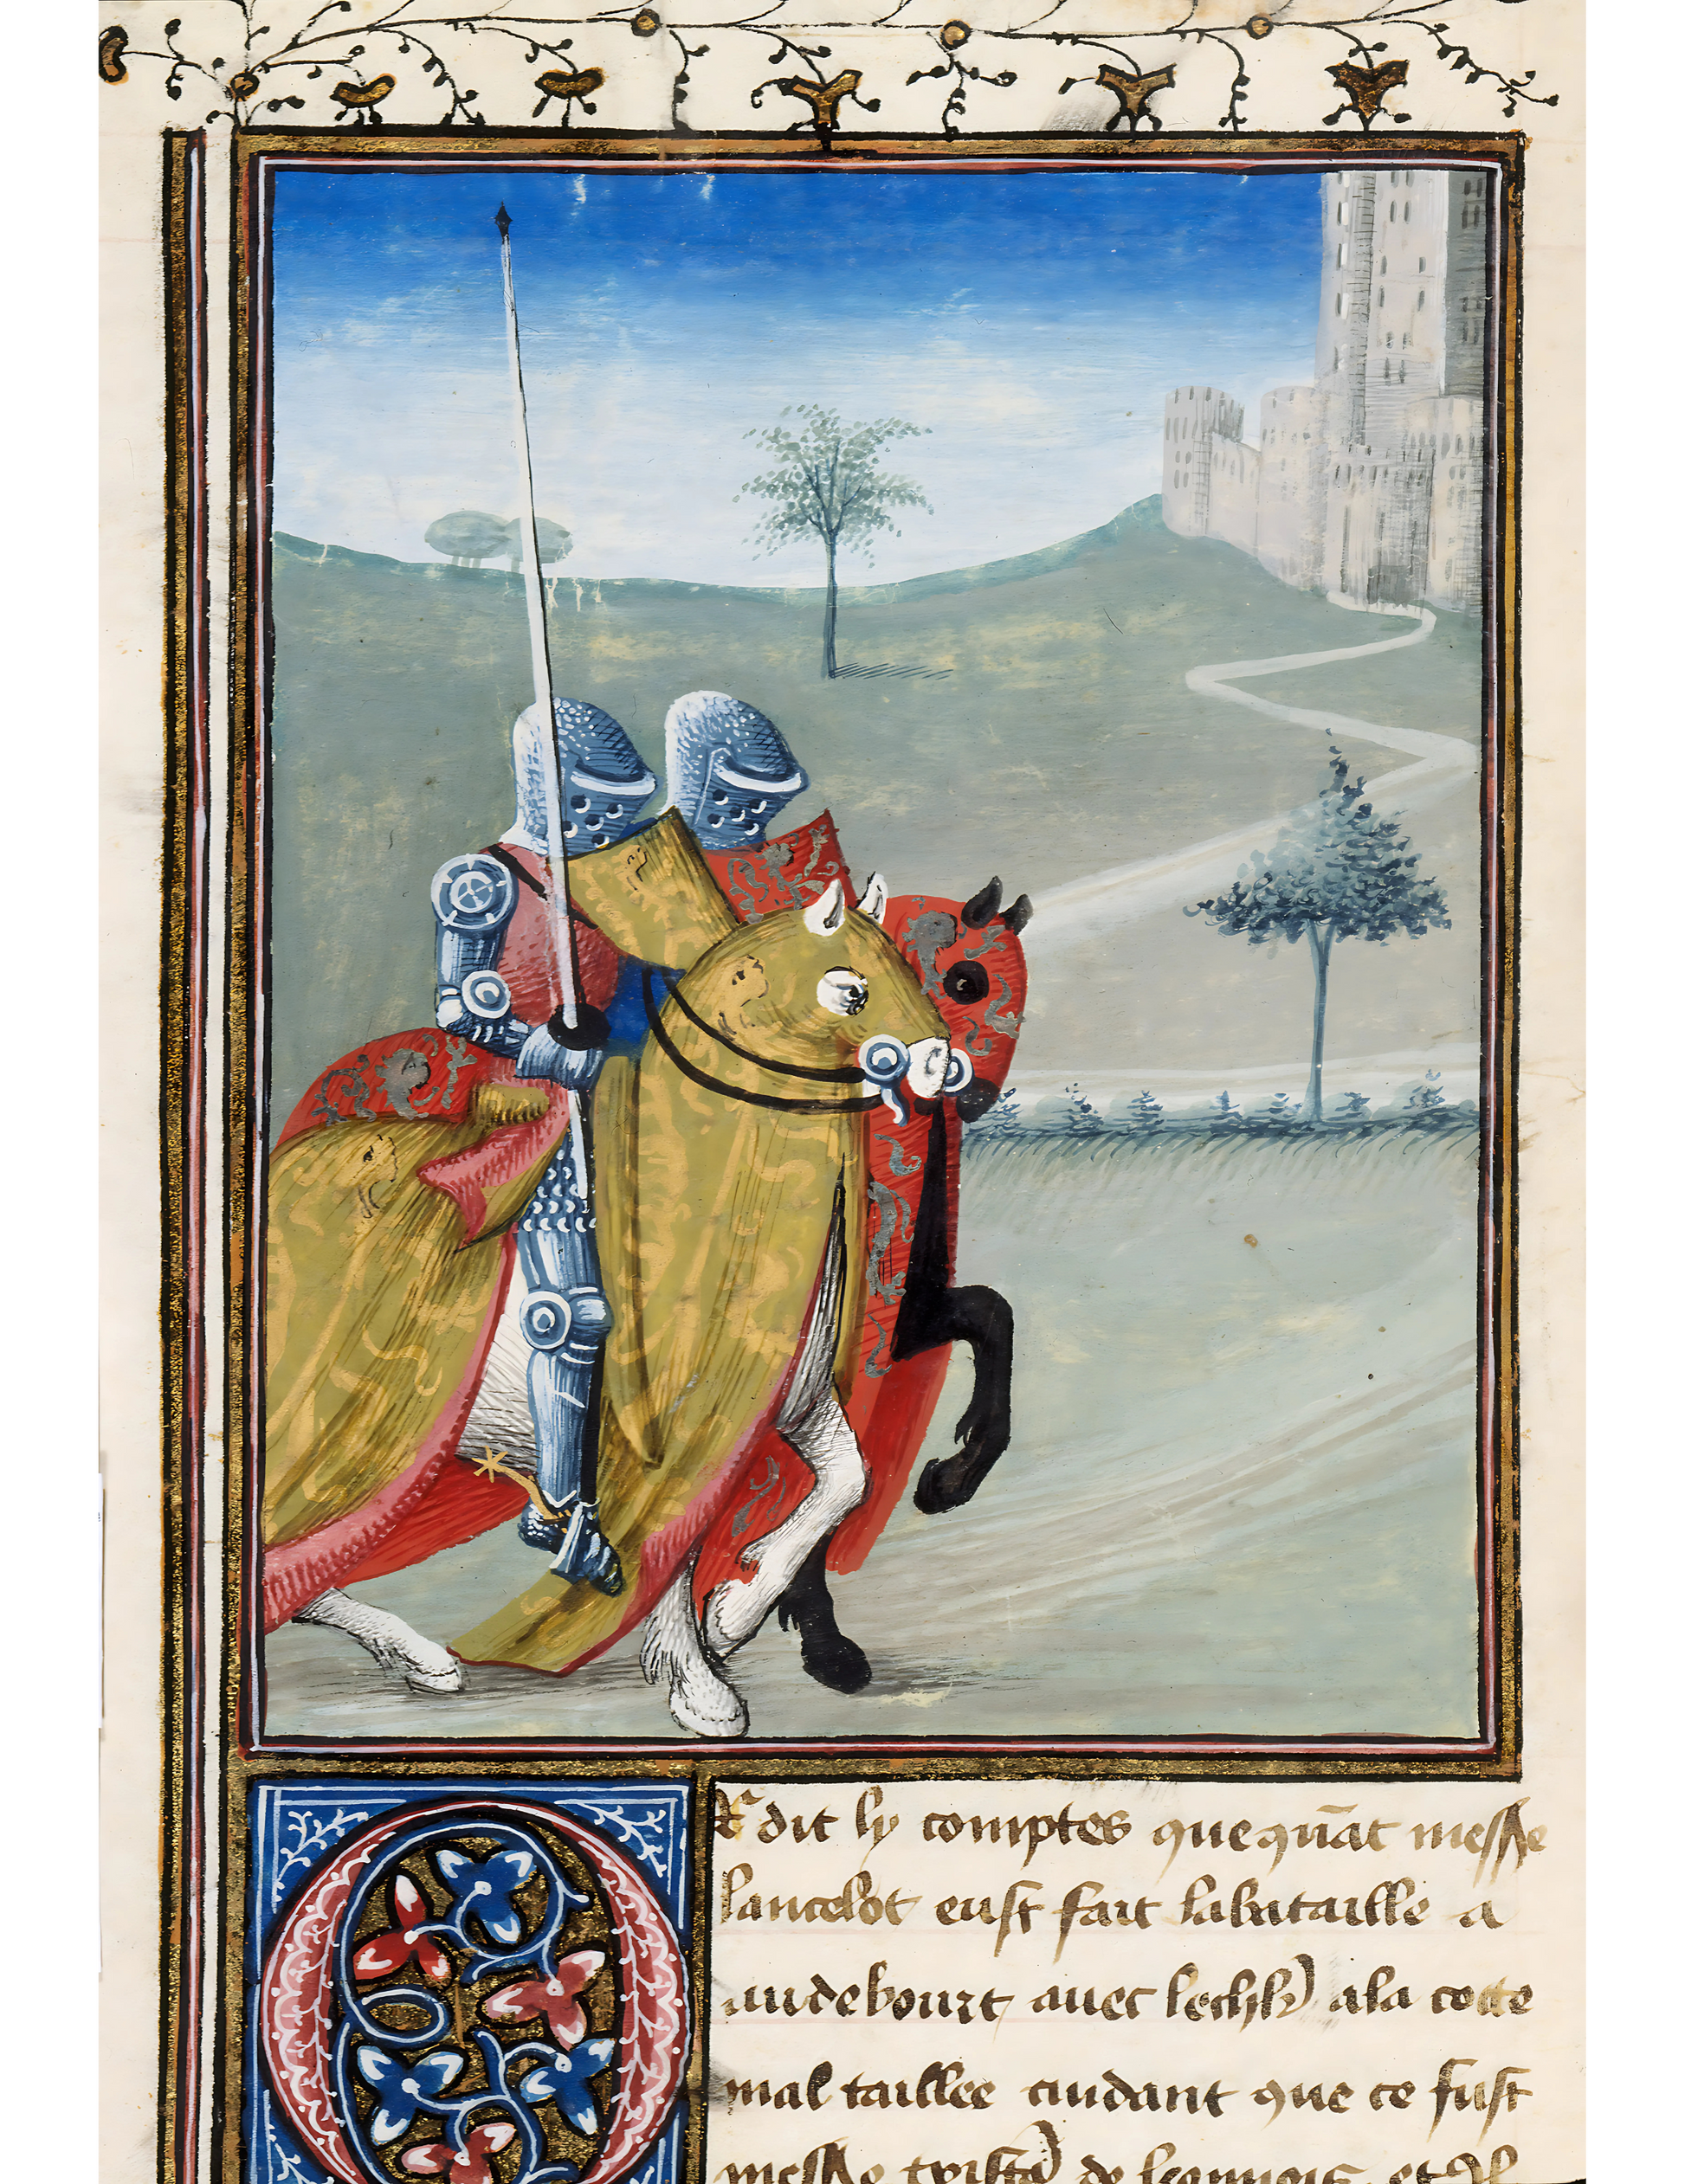 Or dit ly comptes que quāt messe
lancelot eust fait la bataille a
audebourt auec lechlr a la cotte
mal taillee cuidant que ce fust
messe tristā de leonnois et